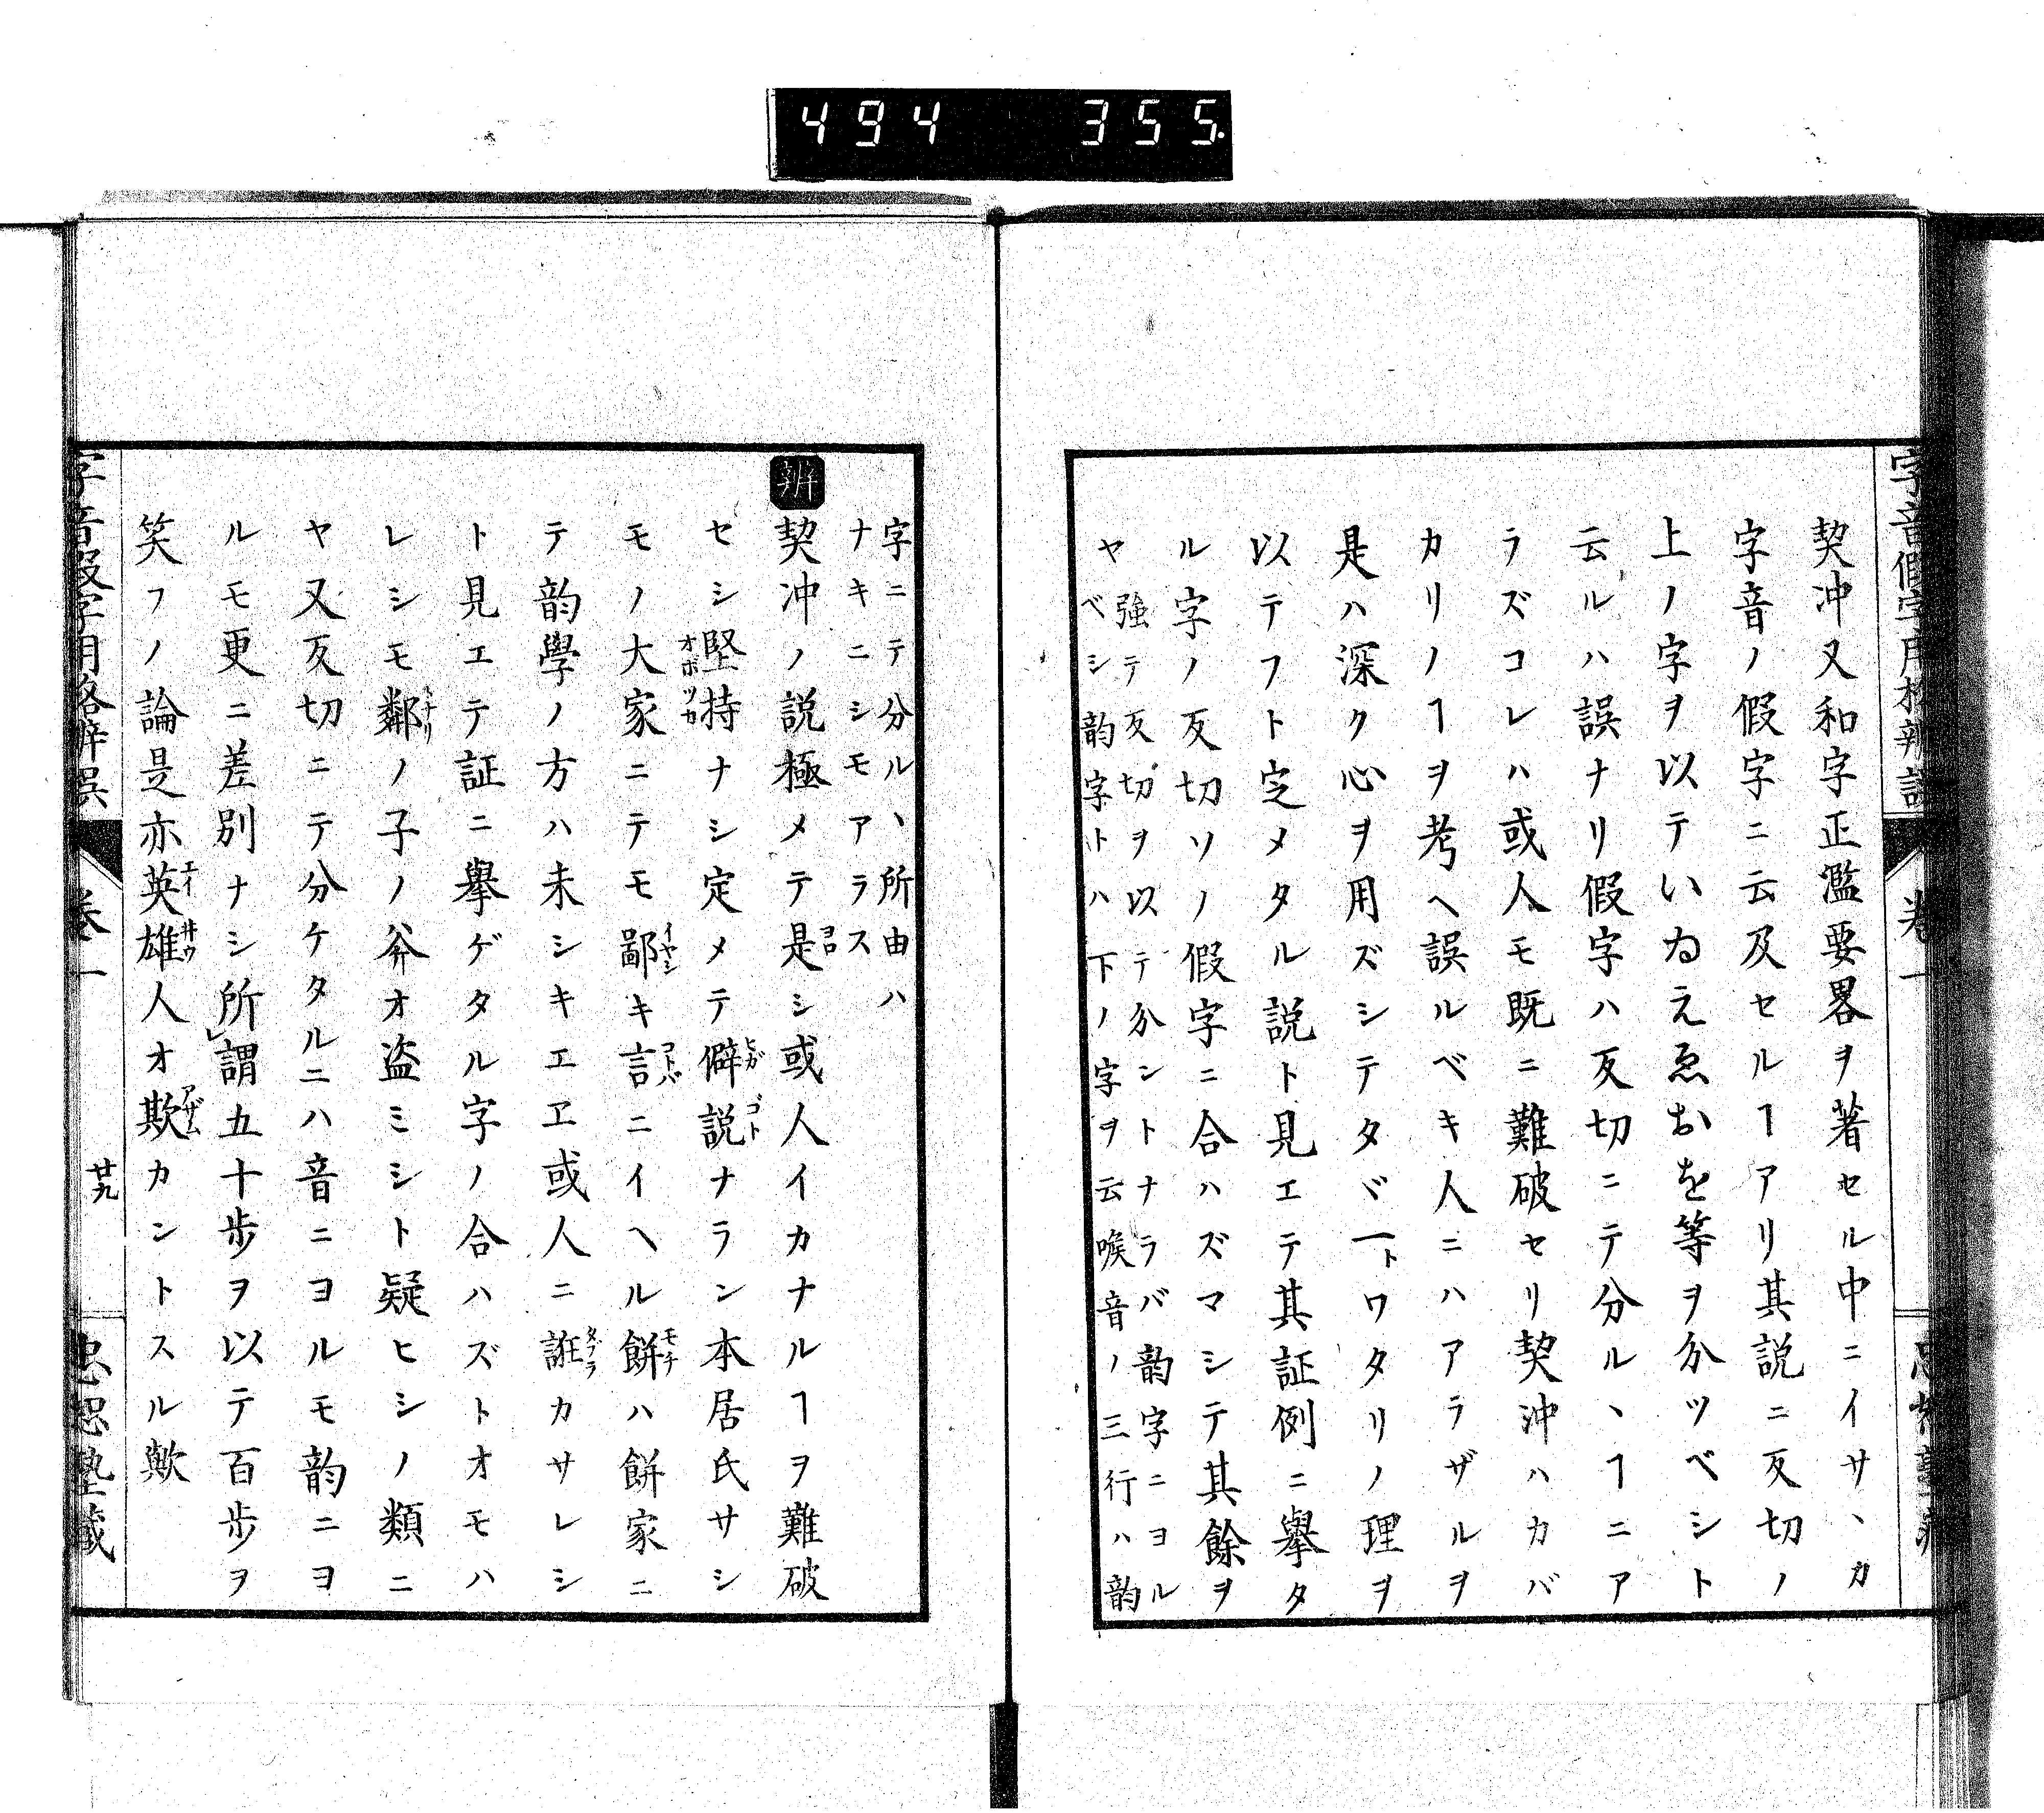 494 355.
字音假字用格辨誤 卷一
契沖又和字正濫要畧ヲ著セル中ニイサヽカ
字音ノ假字ニ云及セルヿアリ其説ニ反切ノ
上ノ字ヲ以テいゐえゑおを等ヲ分ツベシト
云ルハ誤ナリ假字ハ反切ニテ分ルヽヿニア
ラズコレハ或人モ既ニ難破セリ契沖ハカバ
カリノヿヲ考ヘ誤ルベキ人ニハアラザルヲ
是ハ深ク心ヲ用ズシテタヾ一トワタリノ理ヲ
以テフト定メタル説ト見エテ其証例ニ擧タ
ル字ノ反切ソノ假字ニ合ハズマシテ其餘ヲ
ヤ強テ反切ヲ以テ分ントナラバ韵字ニヨル
ベシ韵字トハ下ノ字ヲ云喉音ノ三行ハ韵
字ニテ分ルヽ所由ハ
ナキニシモアラス
辨 契沖ノ説極メテ是シ或人イカナルヿヲ難破
セシ堅持ナシ定メテ僻説ナラン本居氏サシ
モノ大家ニテモ鄙キ言ニイヘル餅ハ餅家ニ
テ韵學ノ方ハ未シキエヱ或人ニ誑カサレシ
ト見エテ証ニ擧ゲタル字ノ合ハズトオモハ
レシモ鄰ノ子ノ斧オ盗ミシト疑ヒシノ類ニ
ヤ又反切ニテ分ケタルニハ音ニヨルモ韵ニヨ
ルモ更ニ差別ナシ所謂五十歩ヲ以テ百歩ヲ
笑フノ論是亦英雄人オ欺カントスル歟
字音假字用格辨誤 卷一 廿九 忠恕塾藏